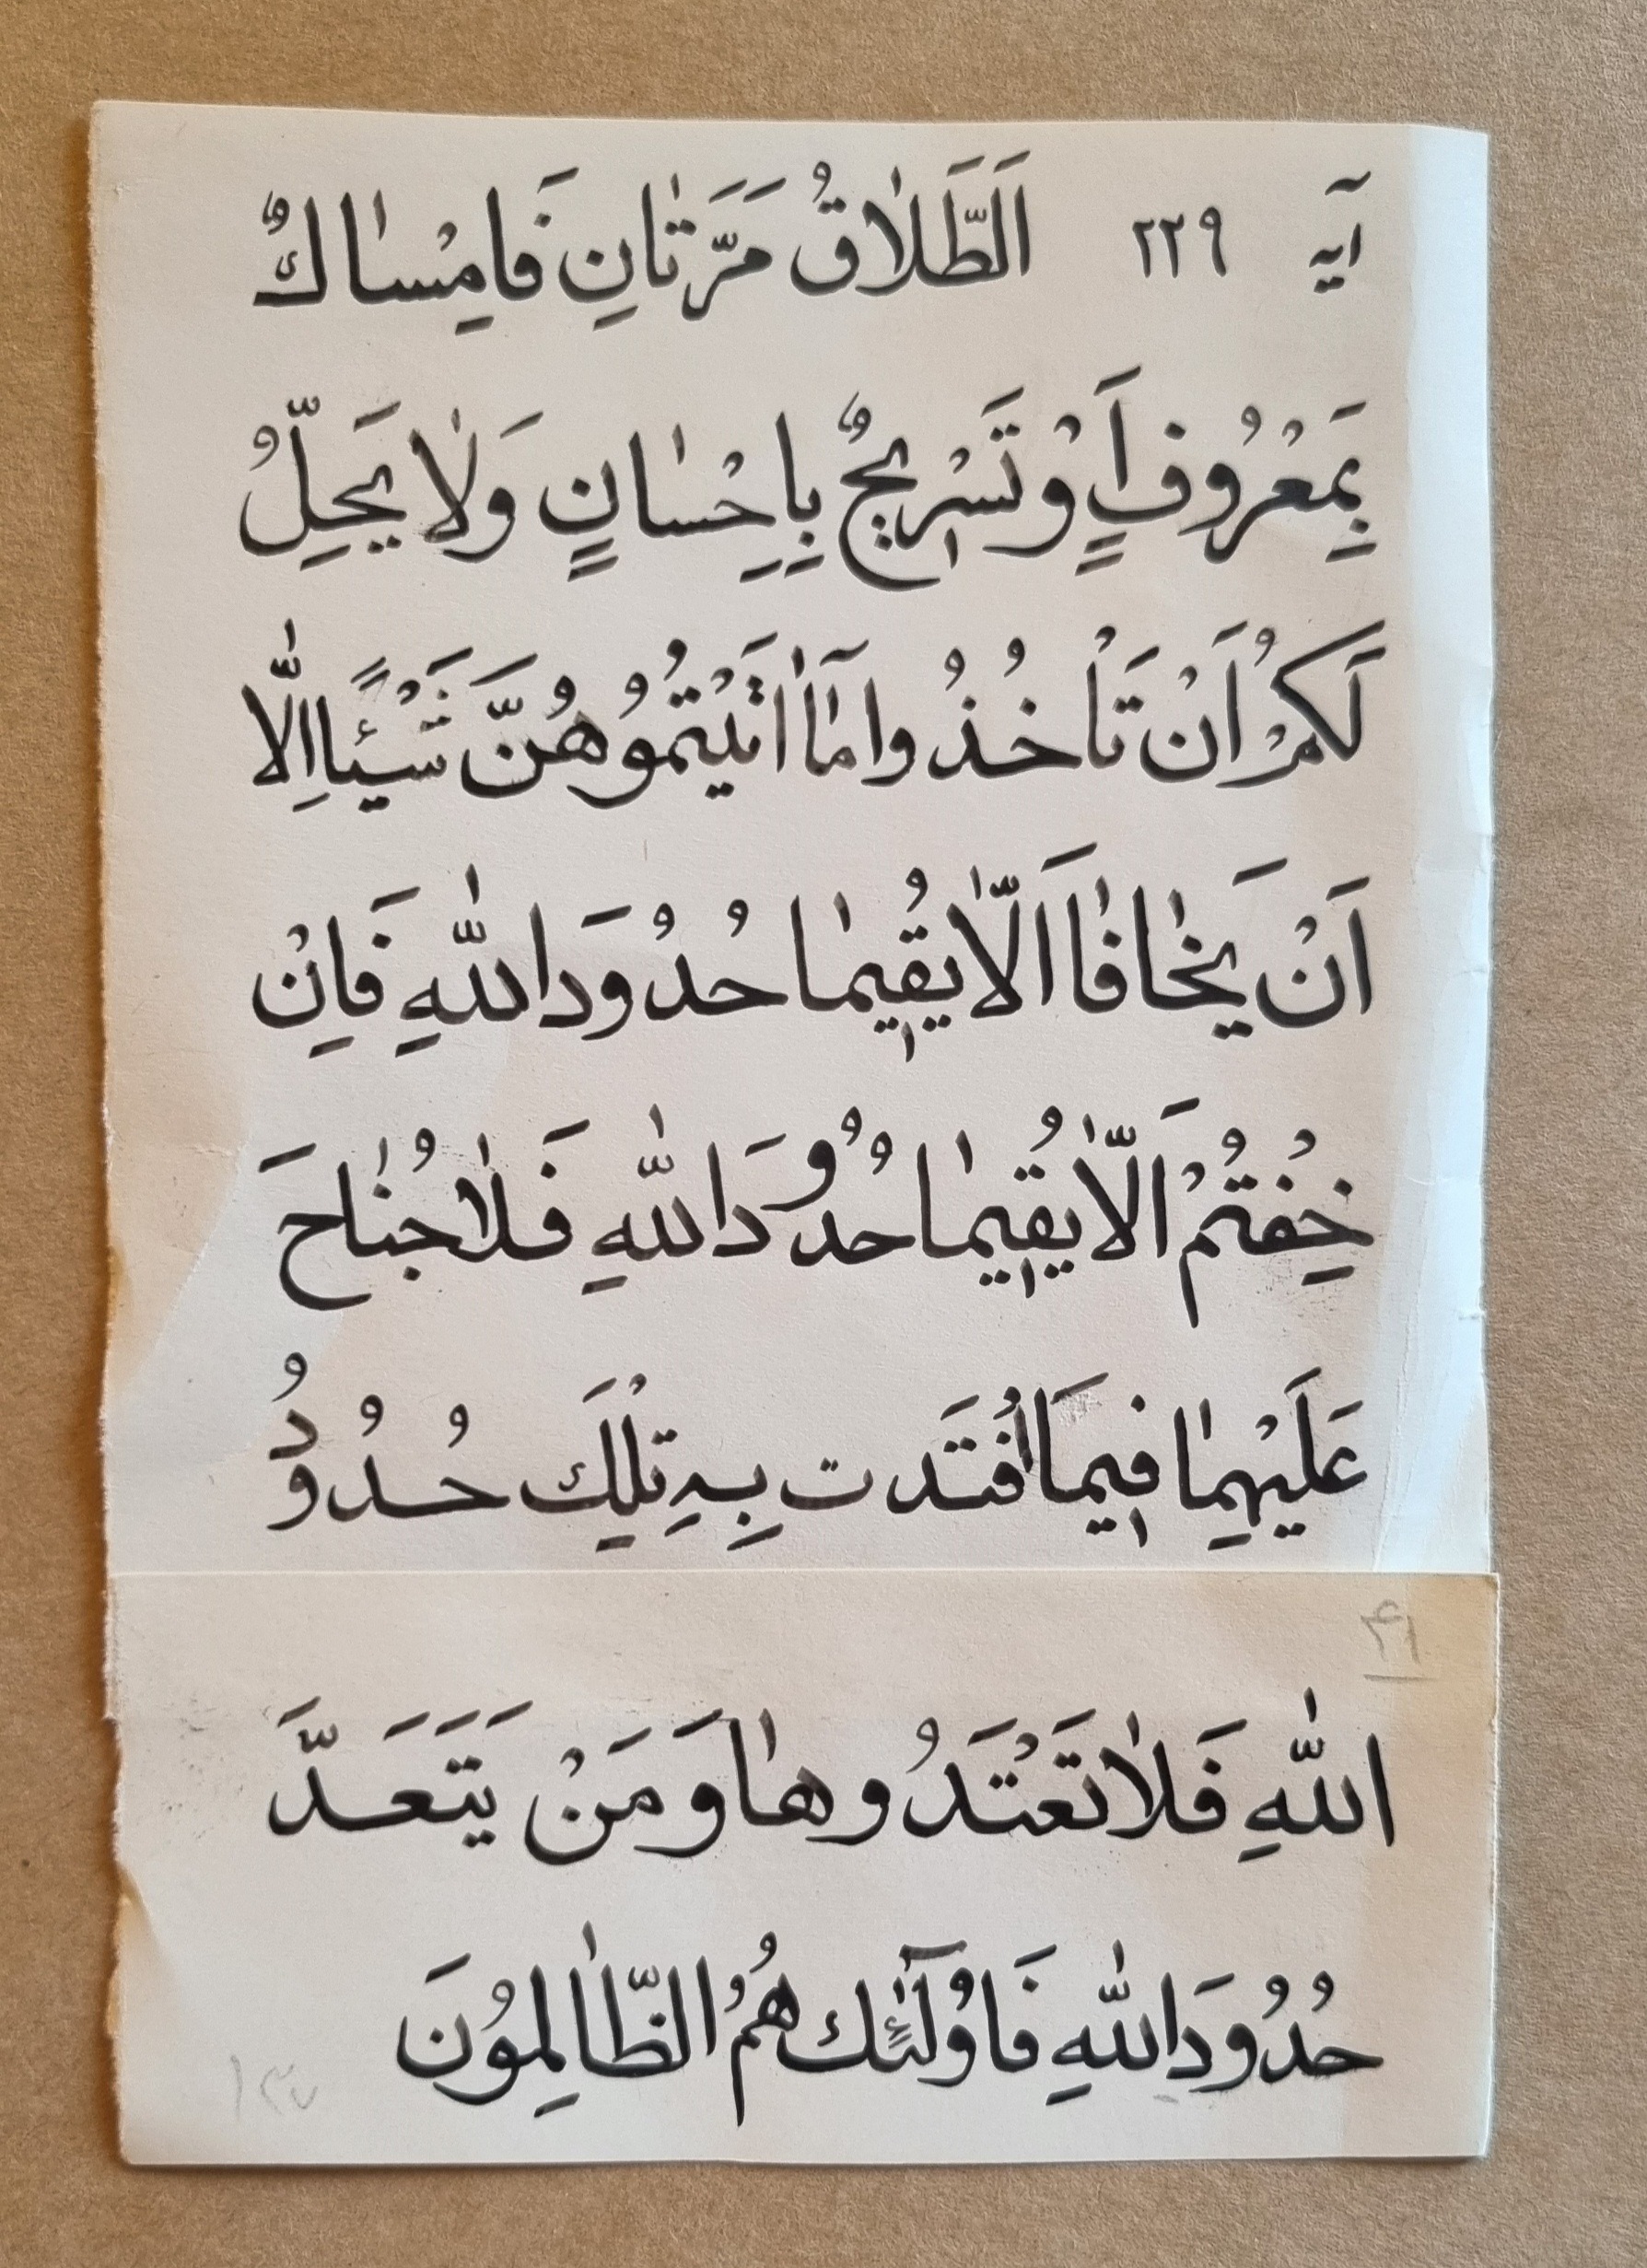 آیه ٢٢٩ اَلطَّلٰاقُ مَرَّتٰانِ فَاِمْسٰاكٌ
بِمَعْرُوفٍ اَوْ تَسْرٖیحٌ بِاِحْسٰانٍ وَلٰا یَحِلُّ
لَكُمْ اَنْ تَاْخُذُوا مِمّٰٓا اٰتَیْتُمُوهُنَّ شَیْئًا اِلّٰا
اَنْ یَخٰافٰا اَلّٰا یُقٖیمٰا حُدُودَ اللّٰهِ فَاِنْ
خِفْتُمْ اَلّٰا یُقٖیمٰا حُدُودَ اللّٰهِ فَلٰا جُنٰاحَ
عَلَیْهِمٰا فٖیمَا افْتَدَت بِهِ تِلْكَ حُدُودُ
۴۱
اللّٰهِ فَلٰا تَعْتَدُوهٰا وَمَنْ یَتَعَدَّ
حُدُودَ اللّٰهِ فَاُوْلٰٓئِك هُمُ الظّٰالِمُونَ